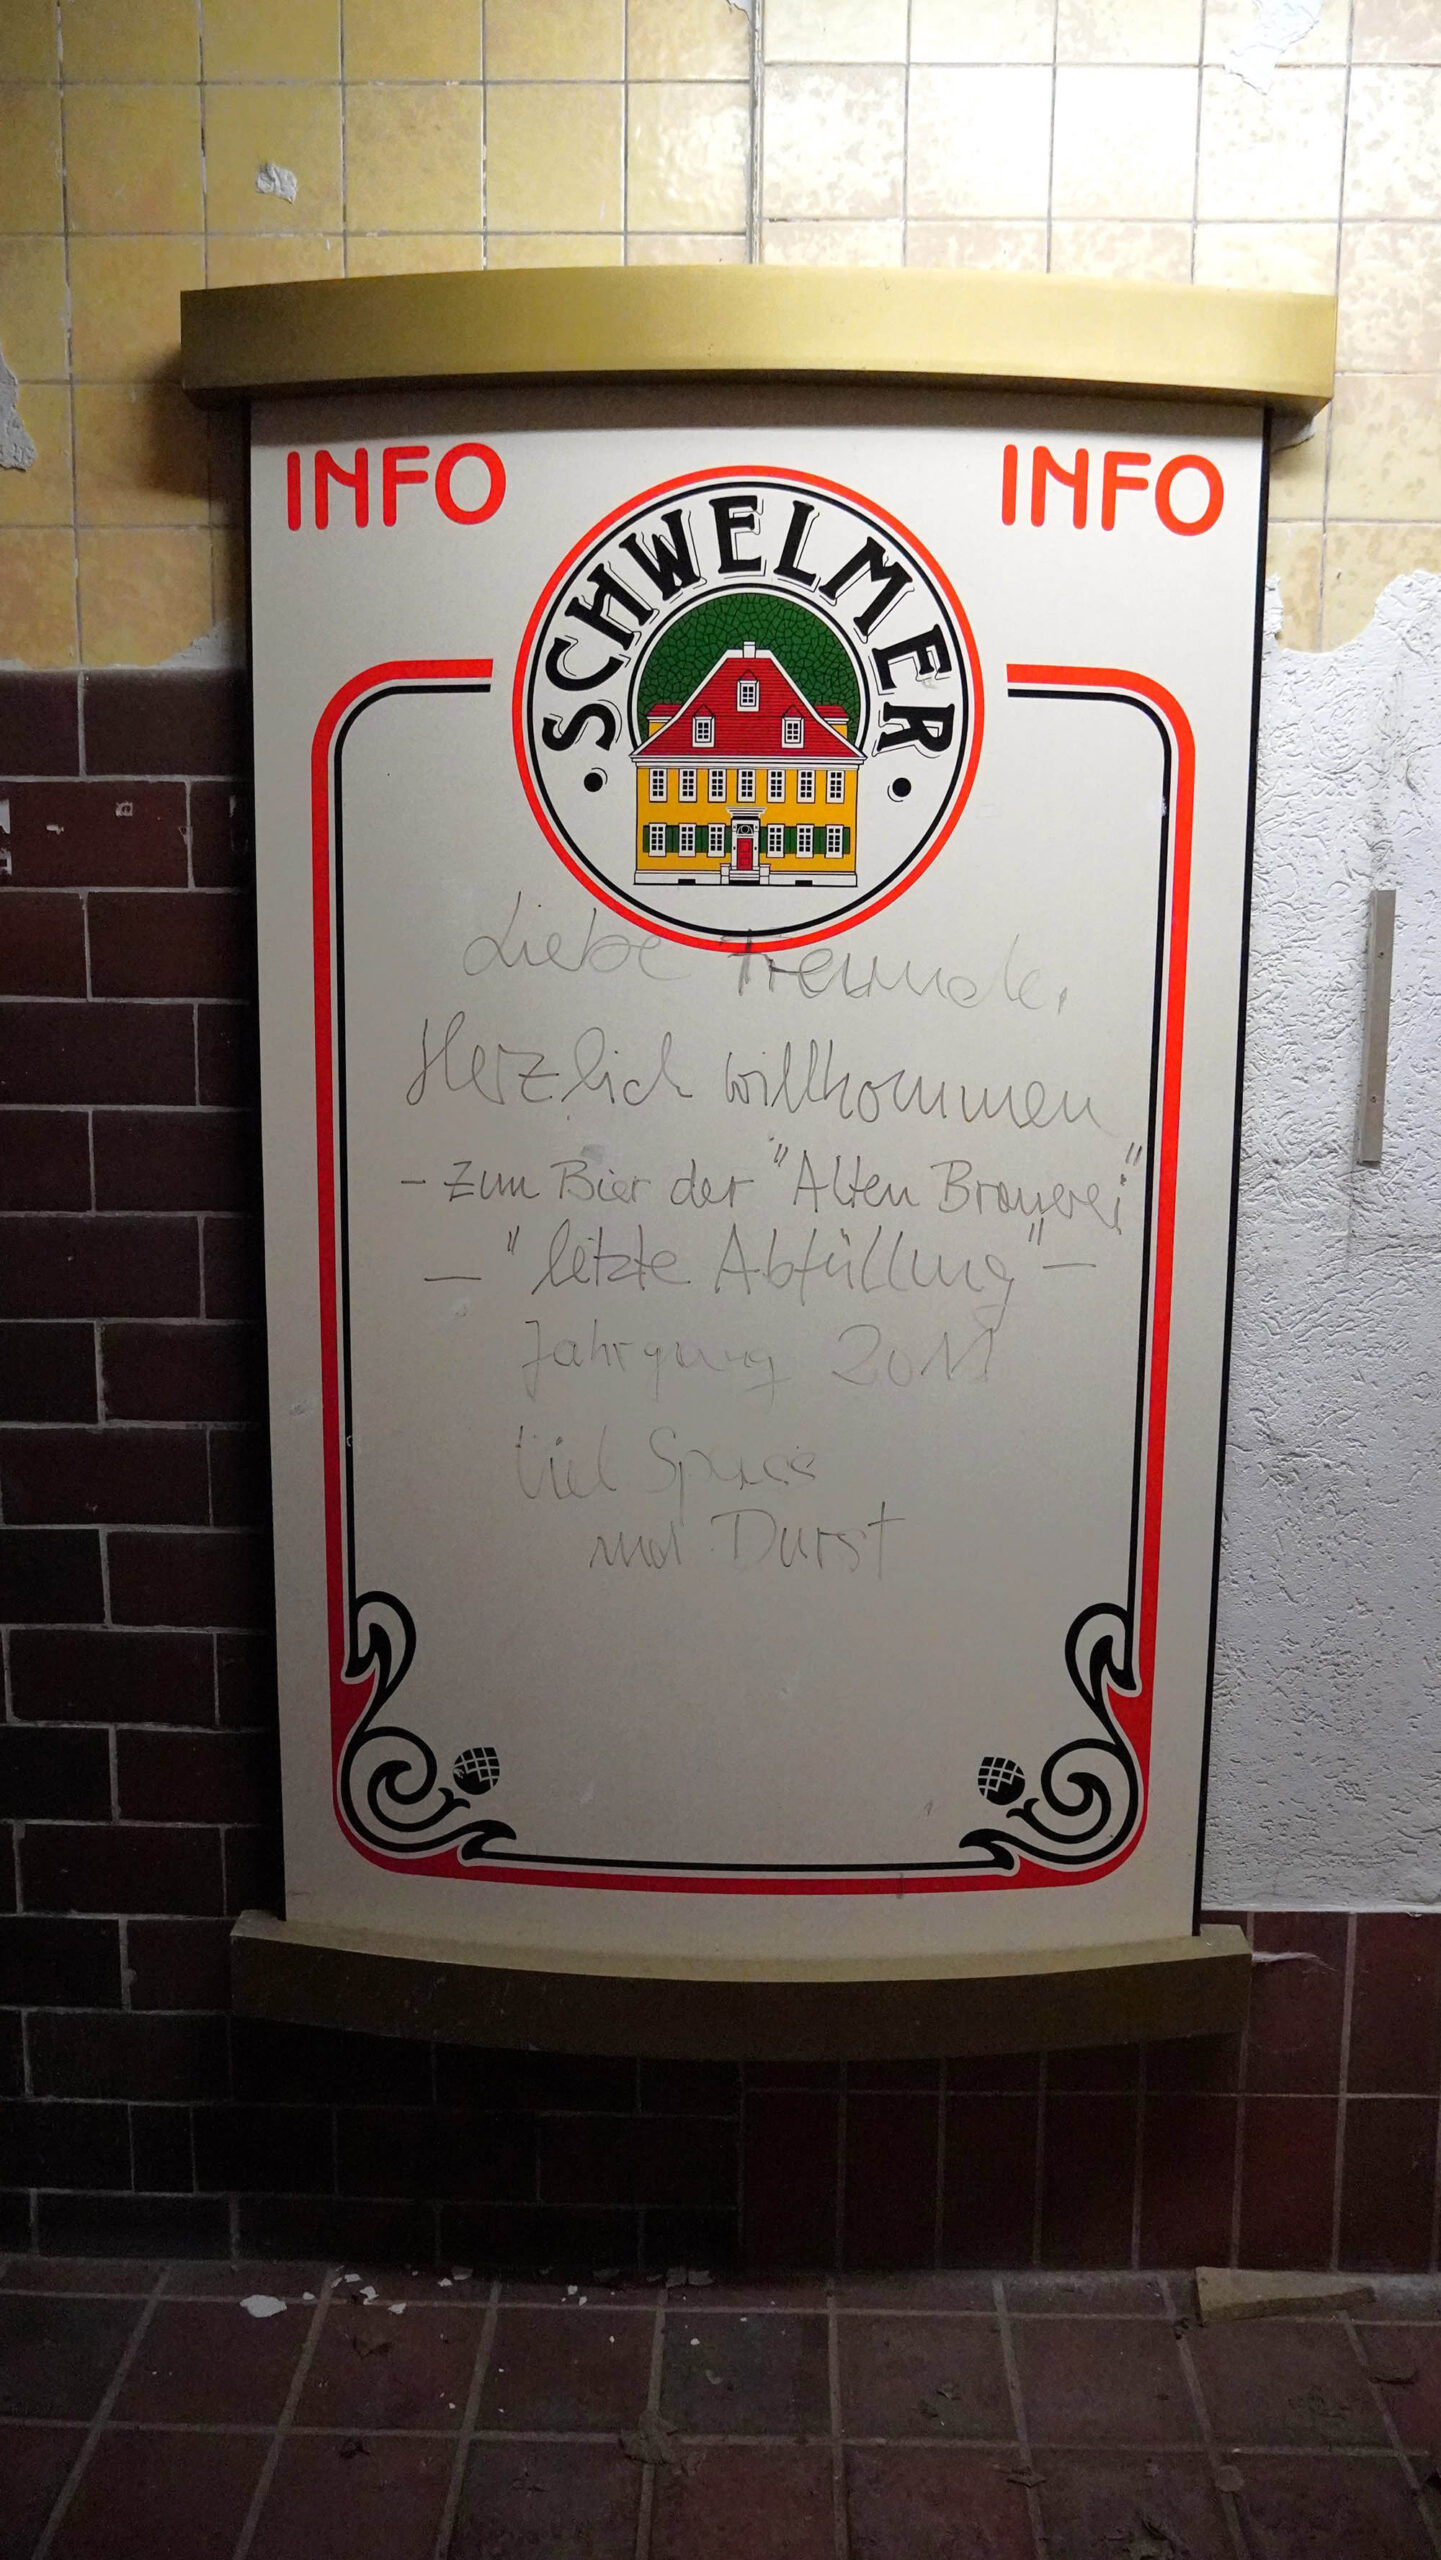 INFO INFO
SCHWELMER
Liebe Freunde,
Herzlich willkommen
- Zum Bier der "Alten Brauerei"
- "letzte Abfüllung" -
Jahrgang 2011
Viel Spass
und Durst